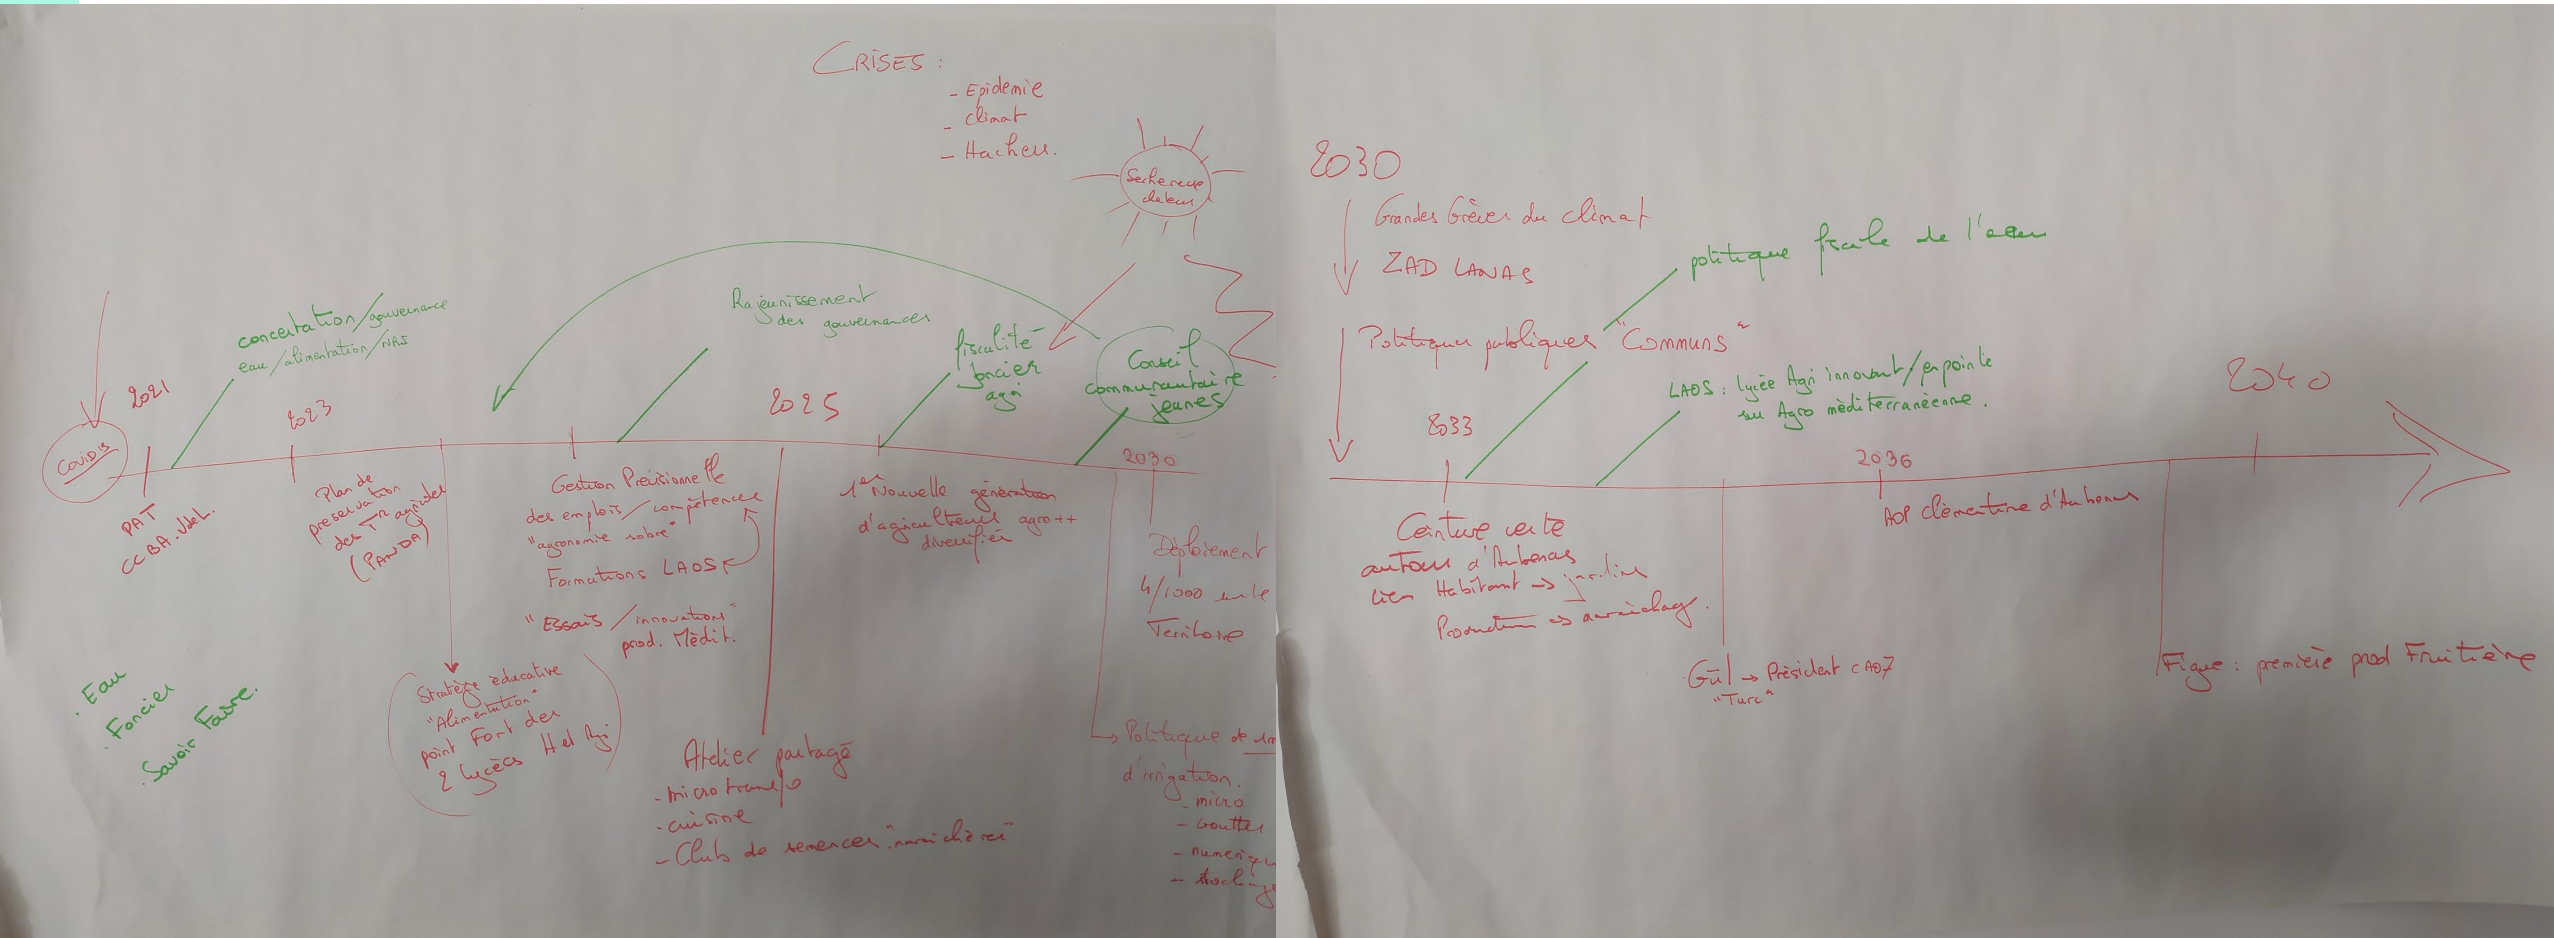 CRISES :
- Epidemie
- climat
- Hackeu.
Secheresse
chaleur
concertation/gouvernance
eau/alimentation/NRJ
Rajeunissement
des gouvernances
fiscalité
foncier
agri
Conseil
communautaire
jeunes
Covid19
2021
2023
2025
2030
PAT
CCBA.VdeL.
Plan de
preservation
des Tres agricoles
(PANDA)
Gestion Prévisionnelle
des emplois/compétences
"agronomie sobre"
Formations LAOS
"Essais/innovations"
prod. Médit.
1er Nouvelle génération
d'agriculteurs agro++
diversifiés
Déploiement
4/1000 sur le
Territoire
Stratégie éducative
"Alimentation"
point Fort des
2 lycées H et Agri
Atelier partagé
- micro transfo
- cuisine
- Club de semences "maraichères"
Politique de
d'irrigation.
- micro
- goutte
- numeriqu
- stockage
. Eau
. Foncier
. Savoir Faire.
2030
Grandes Grèves du climat
ZAD LANAS
Politiques publiques "Communs"
politique fiscale de l'eau
LAOS : lycée Agri innovant/en pointe
sur Agro méditerranéenne.
2033
2036
2040
Ceinture verte
autour d'Aubenas
lien Habitant → jardins
Production → maraichage.
AOP Clémentine d'Aubenas
Gül → Président CA07
"Turc"
Figue : première prod Fruitière